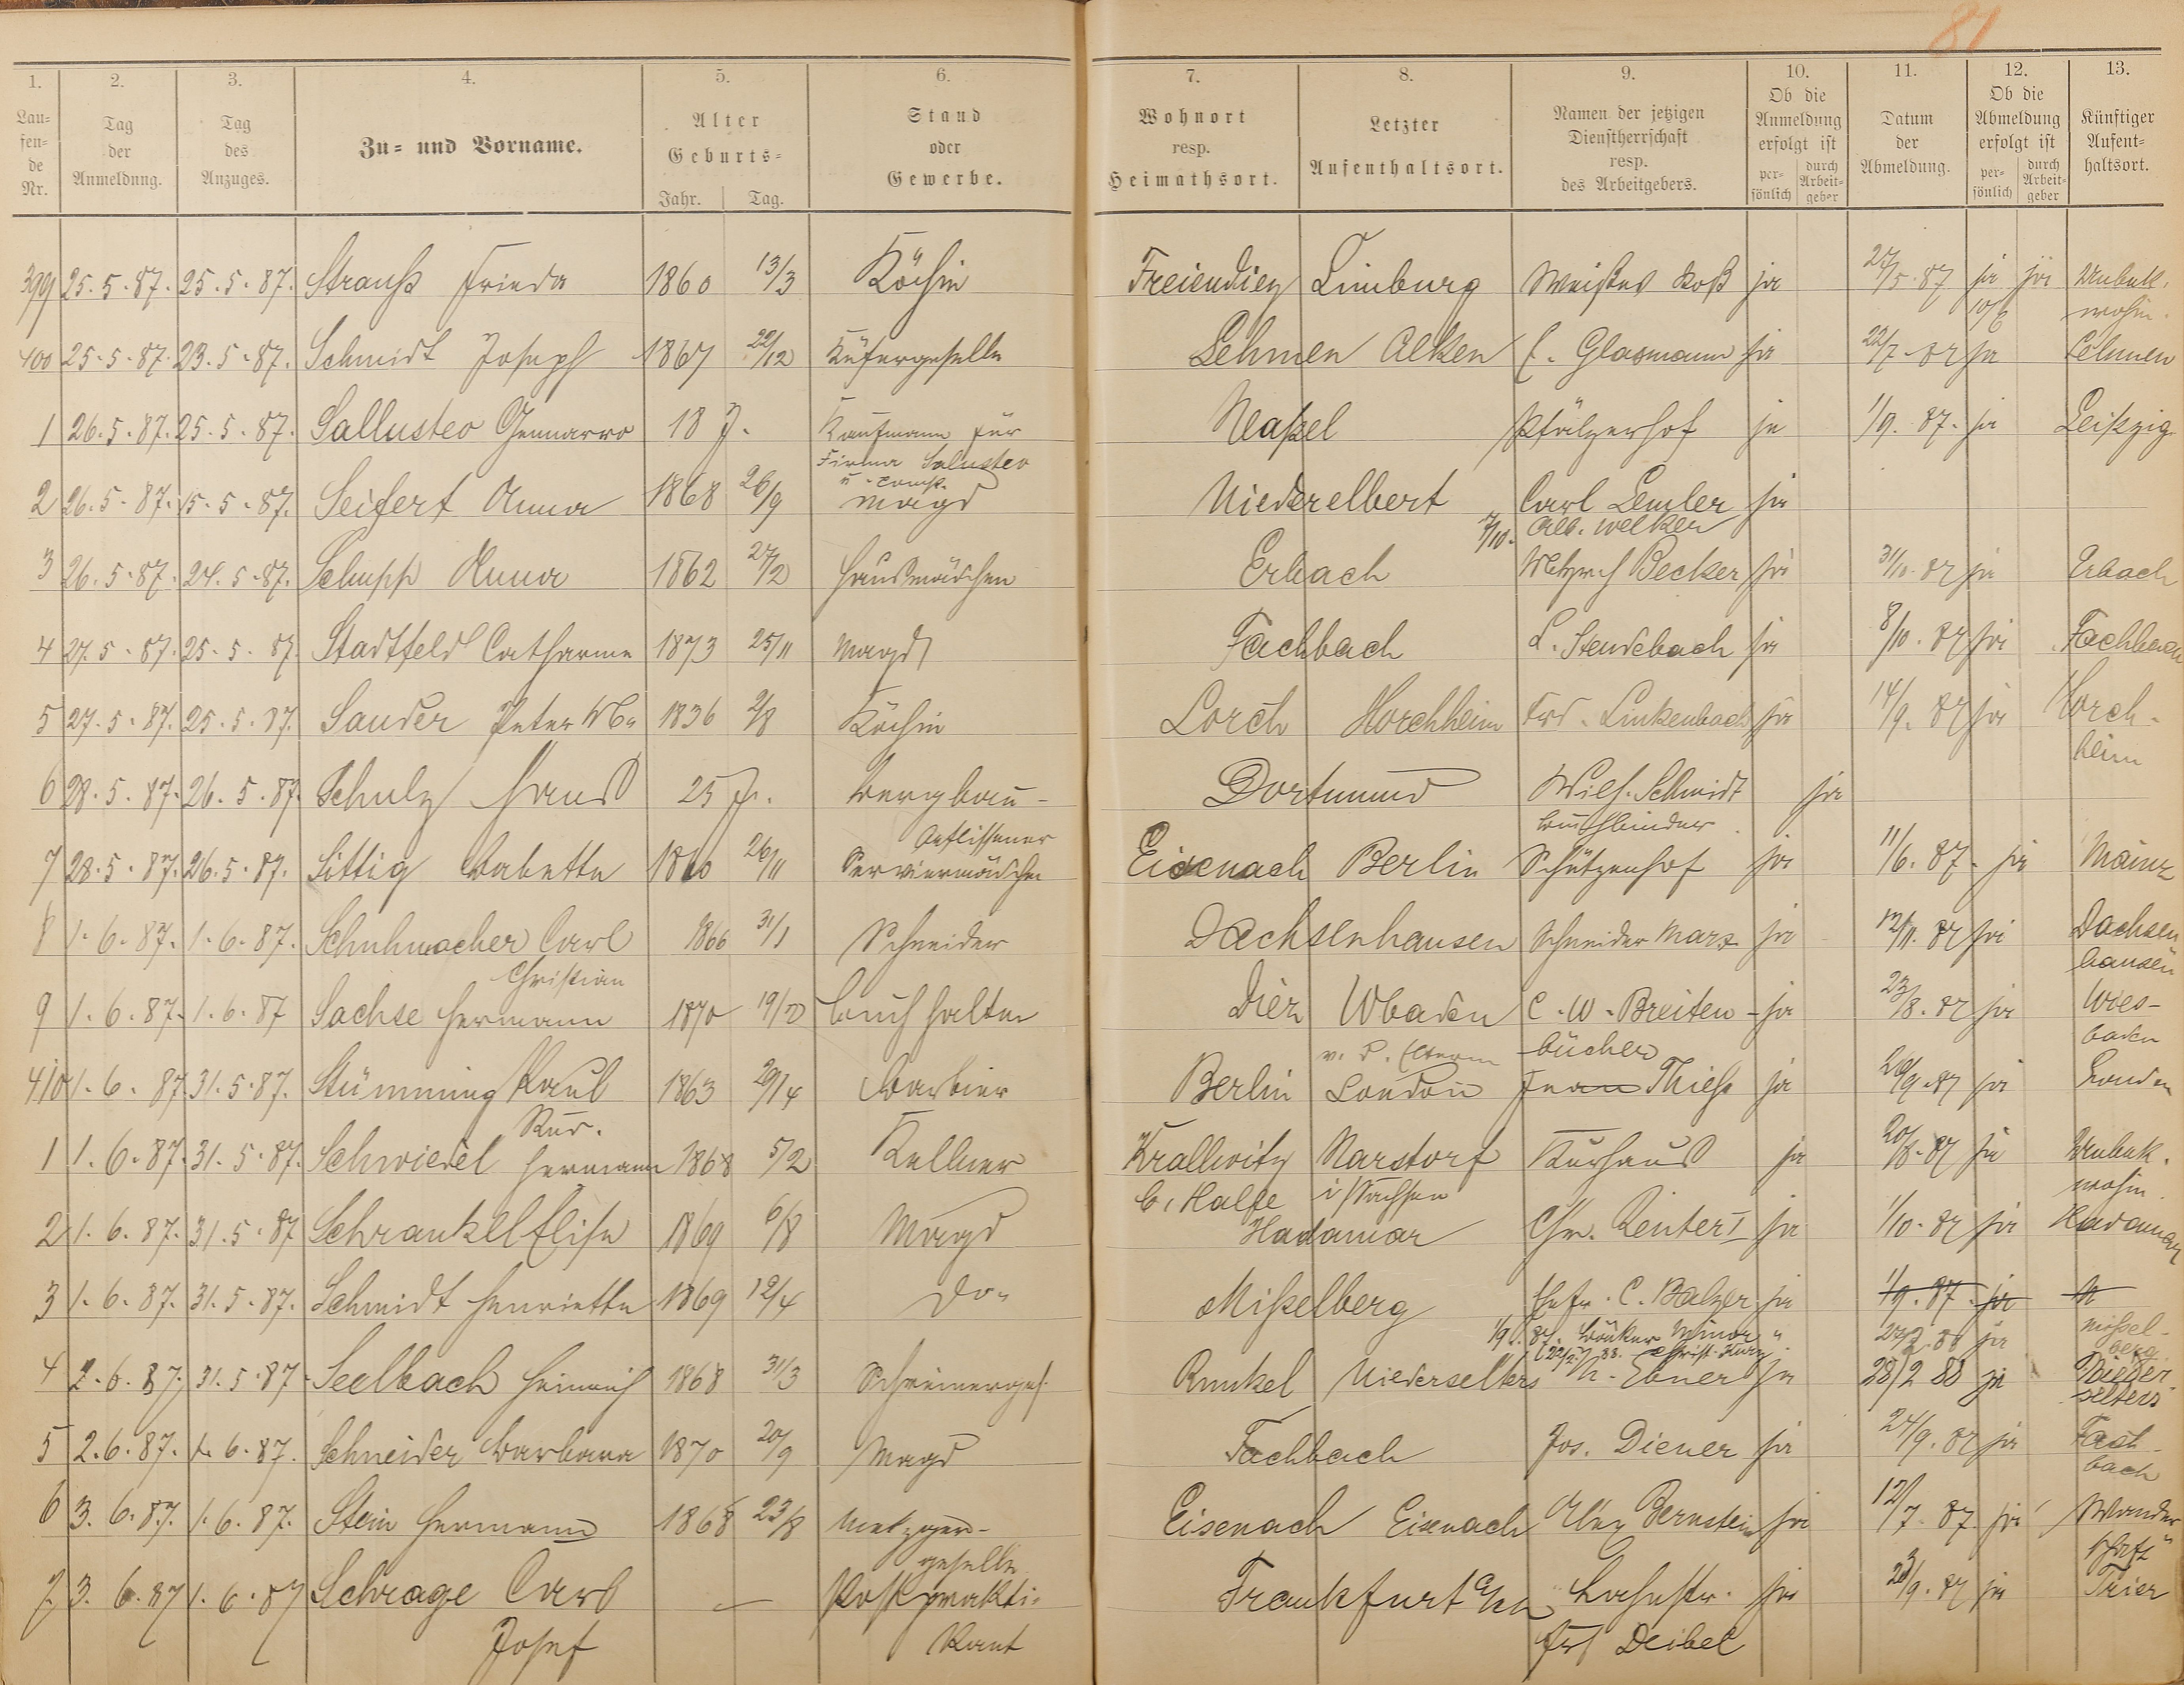 81
1. 2. 3. 4. 5. 6. 7. 8. 9. 10. 11. 12. 13.
Lau=fen=de Nr. Tag der Anmeldung. Tag des Anzuges. Zu= und Vorname. Alter Geburts= Jahr. Tag. Stand oder Gewerbe. Wohnort resp. Heimathsort. Letzter Aufenthaltsort. Namen der jetzigen Dienstherrschaft resp. des Arbeitgebers. Ob die Anmeldung erfolgt ist per=sönlich durch Arbeit=geber Datum der Abmeldung. Ob die Abmeldung erfolgt ist per=sönlich durch Arbeit=geber Künftiger Aufent=haltsort.
399 25.5.87. 25.5.87. Strauß Frieda 1860 13/3 Köchin Freiendiez Limburg Weißes Roß ja 27/5.87 ja ja Unbek.
10/6 wohin.
400 25.5.87. 23.5.87. Schmidt Joseph 1867 22/12 Küfergeselle Lehmen Alken C. Glasmann ja 22/7.87 ja Lehmen
1 26.5.87. 25.5.87. Sallusteo Gennarro 18 J. Kaufmann für Neapel Pfälzerhof ja 1/9.87. ja Leipzig
Firma Salusteo
u. Comp.
2 26.5.87. 15.5.87. Seifert Anna 1868 26/9 Magd Niederelbert Carl Lemler ja
7/10. Alb. Welker
3 26.5.87. 24.5.87. Schupp Anna 1862 27/2 Hausmädchen Erbach Becker ja 31/10.87 ja Erbach
4 27.5.87. 25.5.87. Stadtfeld Catharine 1873 25/11 Magd Fachbach L. Stendebach ja 8/10.87 ja Fachbach
5 27.5.87. 25.5.87. Sauder Peter Wb. 1836 2/8 Köchin Lorch Horchheim Frd. Linkenbach ja 14/9.87 ja Horch-
heim
6 28.5.87. 26.5.87. Schulz Hans 25 J. Bergbau- Dortmund Wilh. Schmidt ja
Beflissener Buchbinder
7 28.5.87. 26.5.87. Sittig Babette 1860 26/11 Serviermädchen Eisenach Berlin Schützenhof ja 11/6.87. ja Mainz
8 1.6.87. 1.6.87. Schuhmacher Carl 1866 31/1 Schneider Dachsenhausen Schneider Marx ja 12/11.87 ja Dachsen
Christian hausen
9 1.6.87. 1.6.87 Sachse Hermann 1870 19/10 Buchhalter Diez Wbaden C.W. Breiten- ja 23/8.87 ja Wies-
v. d. Eltern bücher baden
410 1.6.87. 31.5.87. Stümming Paul 1863 29/4 Barbier Berlin London Thieß ja 20/9.87 ja London
Rud.
1 1.6.87. 31.5.87. Schwiedel Hermann 1868 5/2 Kellner Krallwitz Narstorf Kurhaus ja 20/8.87 ja Unbek.
b. Halle i/Sachsen wohin.
2 1.6.87. 31.5.87 Schrankel Elise 1869 6/8 Magd Hadamar Chr. Reuter I ja 1/10.87 ja Hadamar
3 1.6.87. 31.5.87. Schmidt Henriette 1869 12/4 do. Mißelberg C. Balzer ja 1/9.87. ja
1/9.87. Bäcker Minor " ja Missel-
Christ. Kurz berg
4 2.6.87. 31.5.87 Seelbach Heinrich 1868 31/3 Schreinerges. Runkel Niederselters M. Ebner ja 28/2 88 ja Nieder
selters
5 2.6.87. 1.6.87. Schneider Barbara 1870 20/9 Magd Fachbach Jos. Diener ja 24/9.87 ja Fach-
bach
6 3.6.87. 1.6.87. Stein Hermann 1868 23/8 Metzger- Eisenach Eisenach Alex Bernstein ja 12/7.87 ja Wander
geselle schaft
7. 3.6.87 1.6.87 Schrage Carl — Postprakti- Frankfurt a/M Lahnstr. ja 23/9.87 ja Trier
Josef kant Deibel